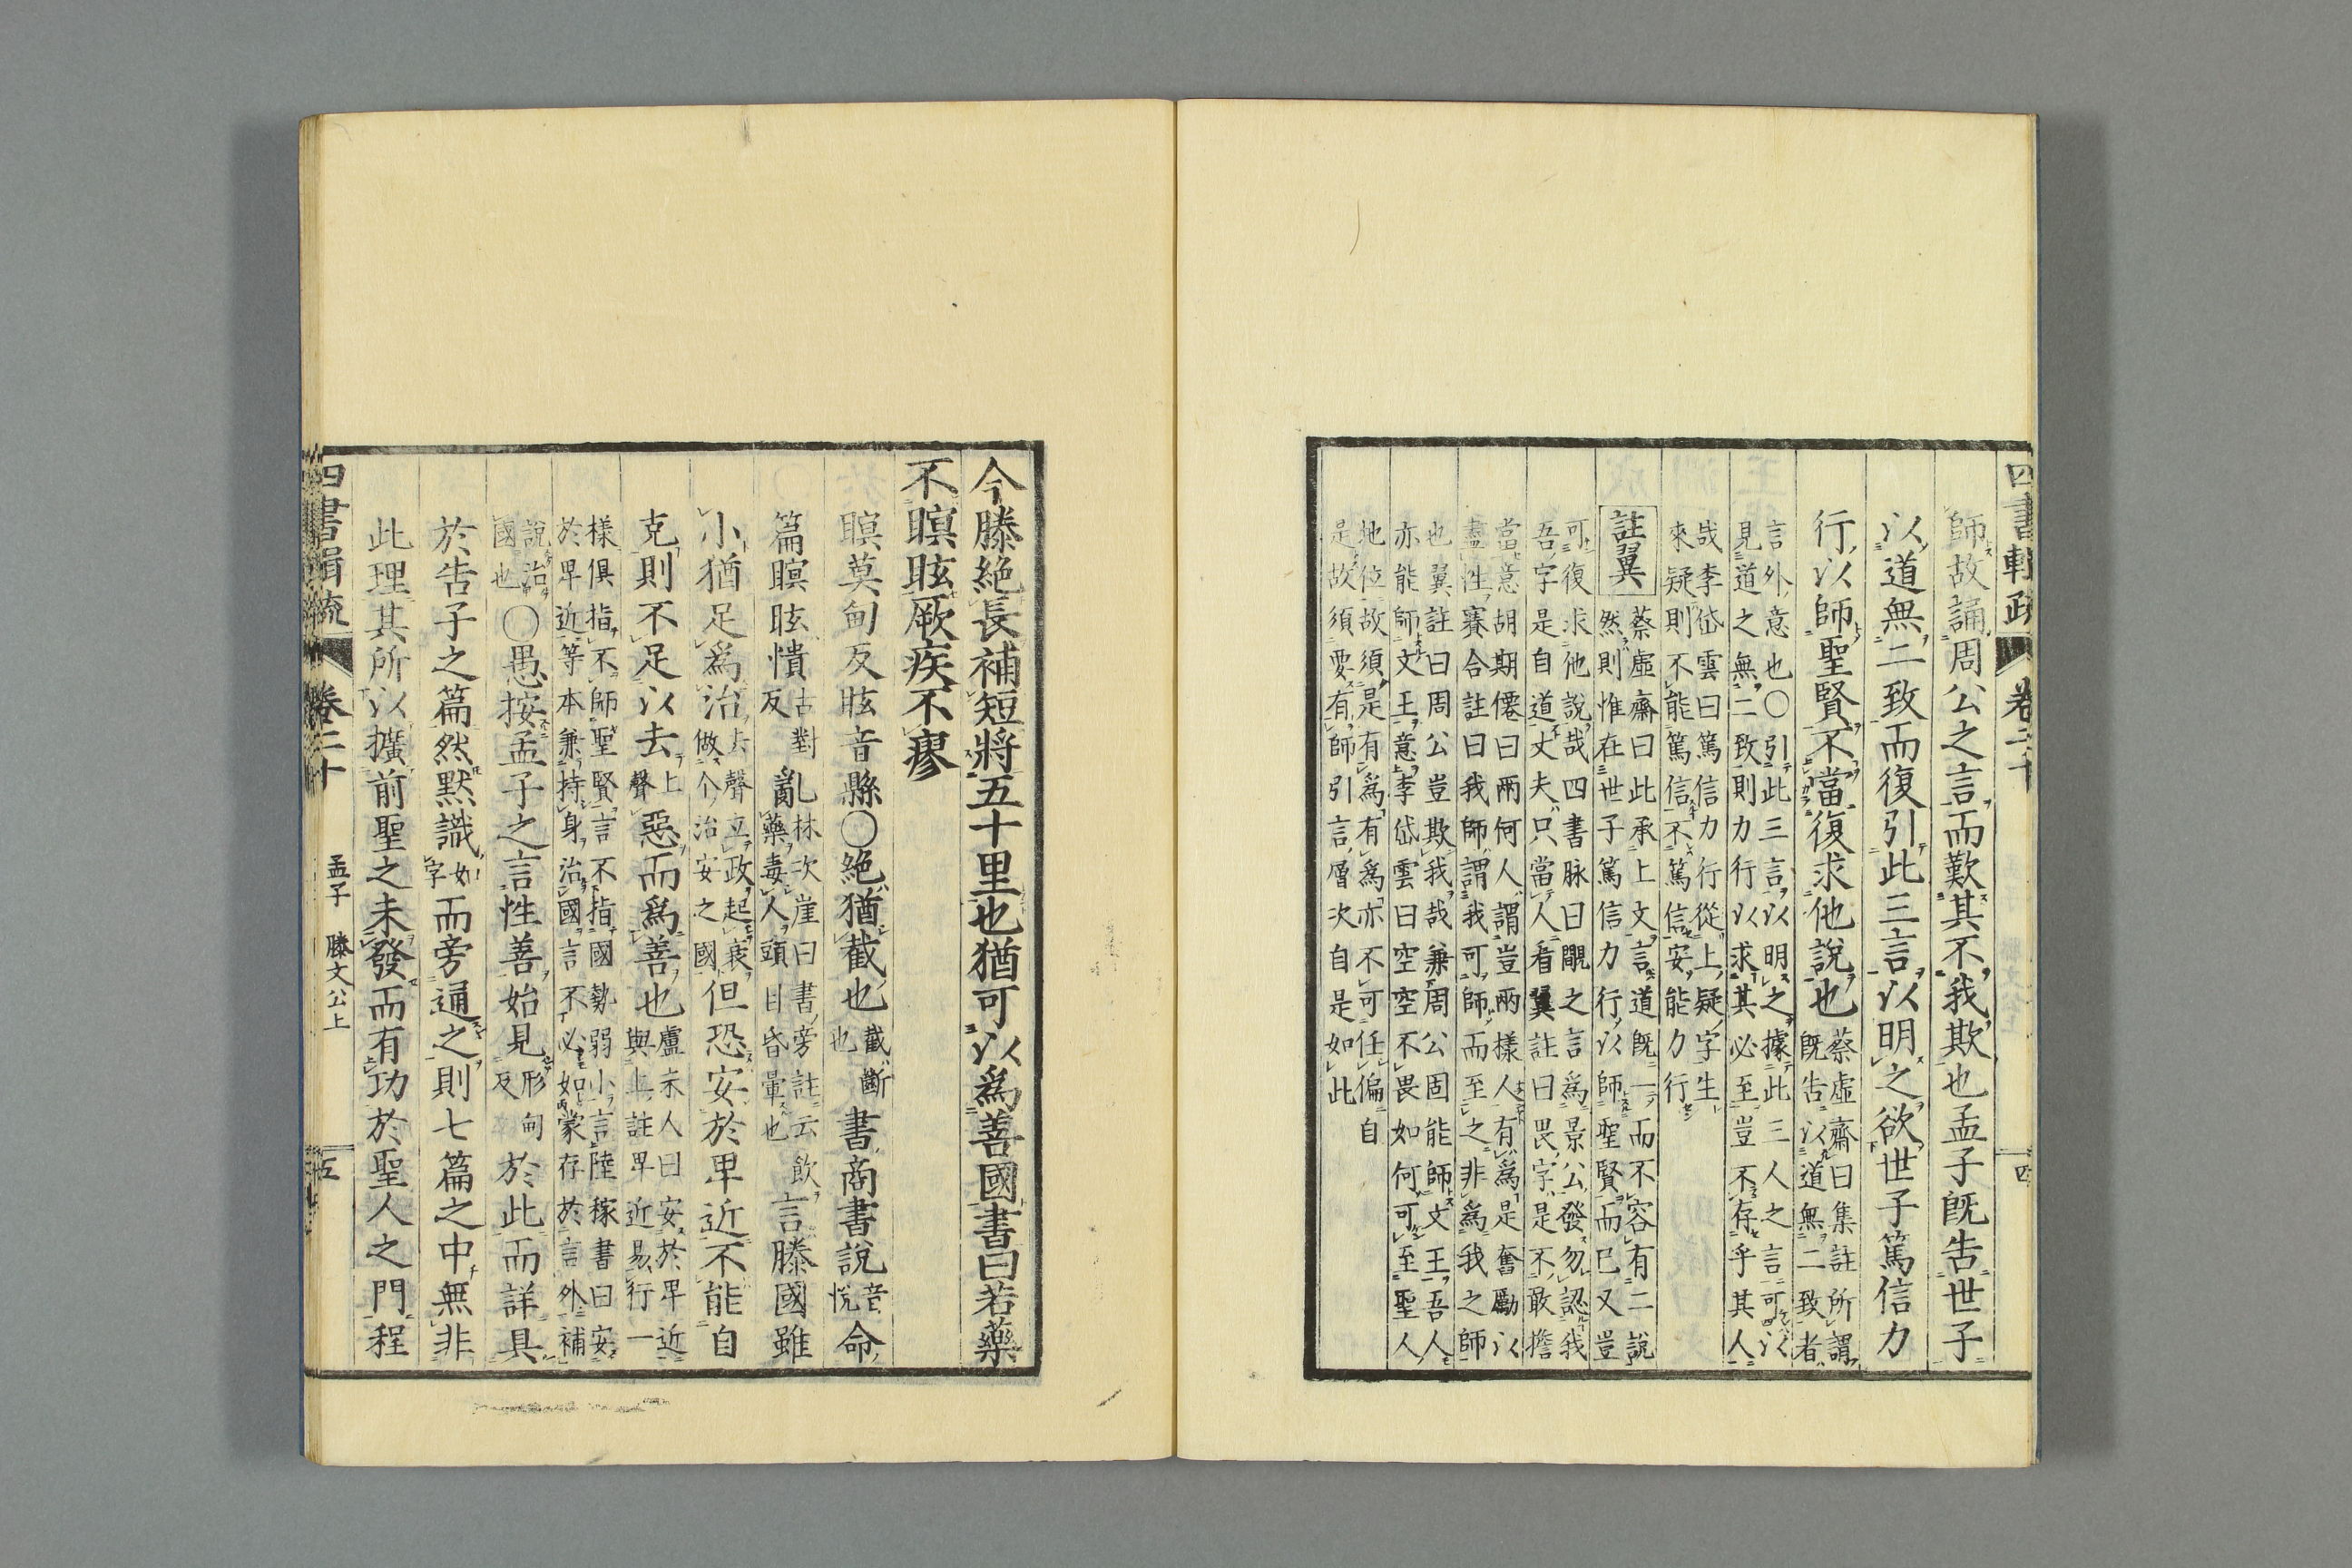 四書輯疏　卷二十　四
師故誦周公之言而歎其不我欺也孟子既告世子
以道無二致而復引此三言以明之欲世子篤信力
行以師聖賢不當復求他說也
蔡虛齋曰集註所謂
既告以道無二致者
言外意也○引此三言以明之據此三人之言可以
見道之無二致則力行以求其必至豈不存乎其人
哉李岱雲曰篤信力行從上疑字生
來疑則不能篤信不篤信安能力行
註翼
蔡虛齋曰此承上文言道既一而不容有二說
然則惟在世子篤信力行以師聖賢而已又豈
可復求他說哉四書脉曰覸之言為景公發勿認我
吾字是自道丈夫只當人看翼註曰畏字是不敢擔
當意胡期僊曰兩何人謂豈兩樣人有為是奮勵以
盡性賽合註曰我師謂我可師而至之非為我之師
也翼註曰周公豈欺我哉兼周公固能師文王吾人
亦能師文王意李岱雲曰空空不畏如何可至聖人
地位故須是有為有為亦不可任偏自
是故須要有師引言層次自是如此
今滕絶長補短將五十里也猶可以為善國書曰若藥
不瞑眩厥疾不瘳
瞑莫甸反眩音縣○絶猶截也
截斷
也
書商書說
音
悅
命
篇瞑眩憒
古對
反
亂
林次崖曰書旁註云飲
藥毒人頭目昏暈也
言滕國雖
小猶足為治
去聲立政起衰
做个治安之國
但恐安於卑近不能自
克則不足以去
上
聲
惡而為善也
盧未人曰安於卑近
與上註卑近易行一
樣俱指不師聖賢言不指國勢弱小言陸稼書曰安
於卑近等本兼持身治國言不必如蒙存於言外補
說治
國也
○愚按孟子之言性善始見
形甸
反
於此而詳具
於告子之篇然默識
如
字
而旁通之則七篇之中無非
此理其所以擴前聖之未發而有功於聖人之門程
四書輯疏　卷二十　孟子　滕文公上　五